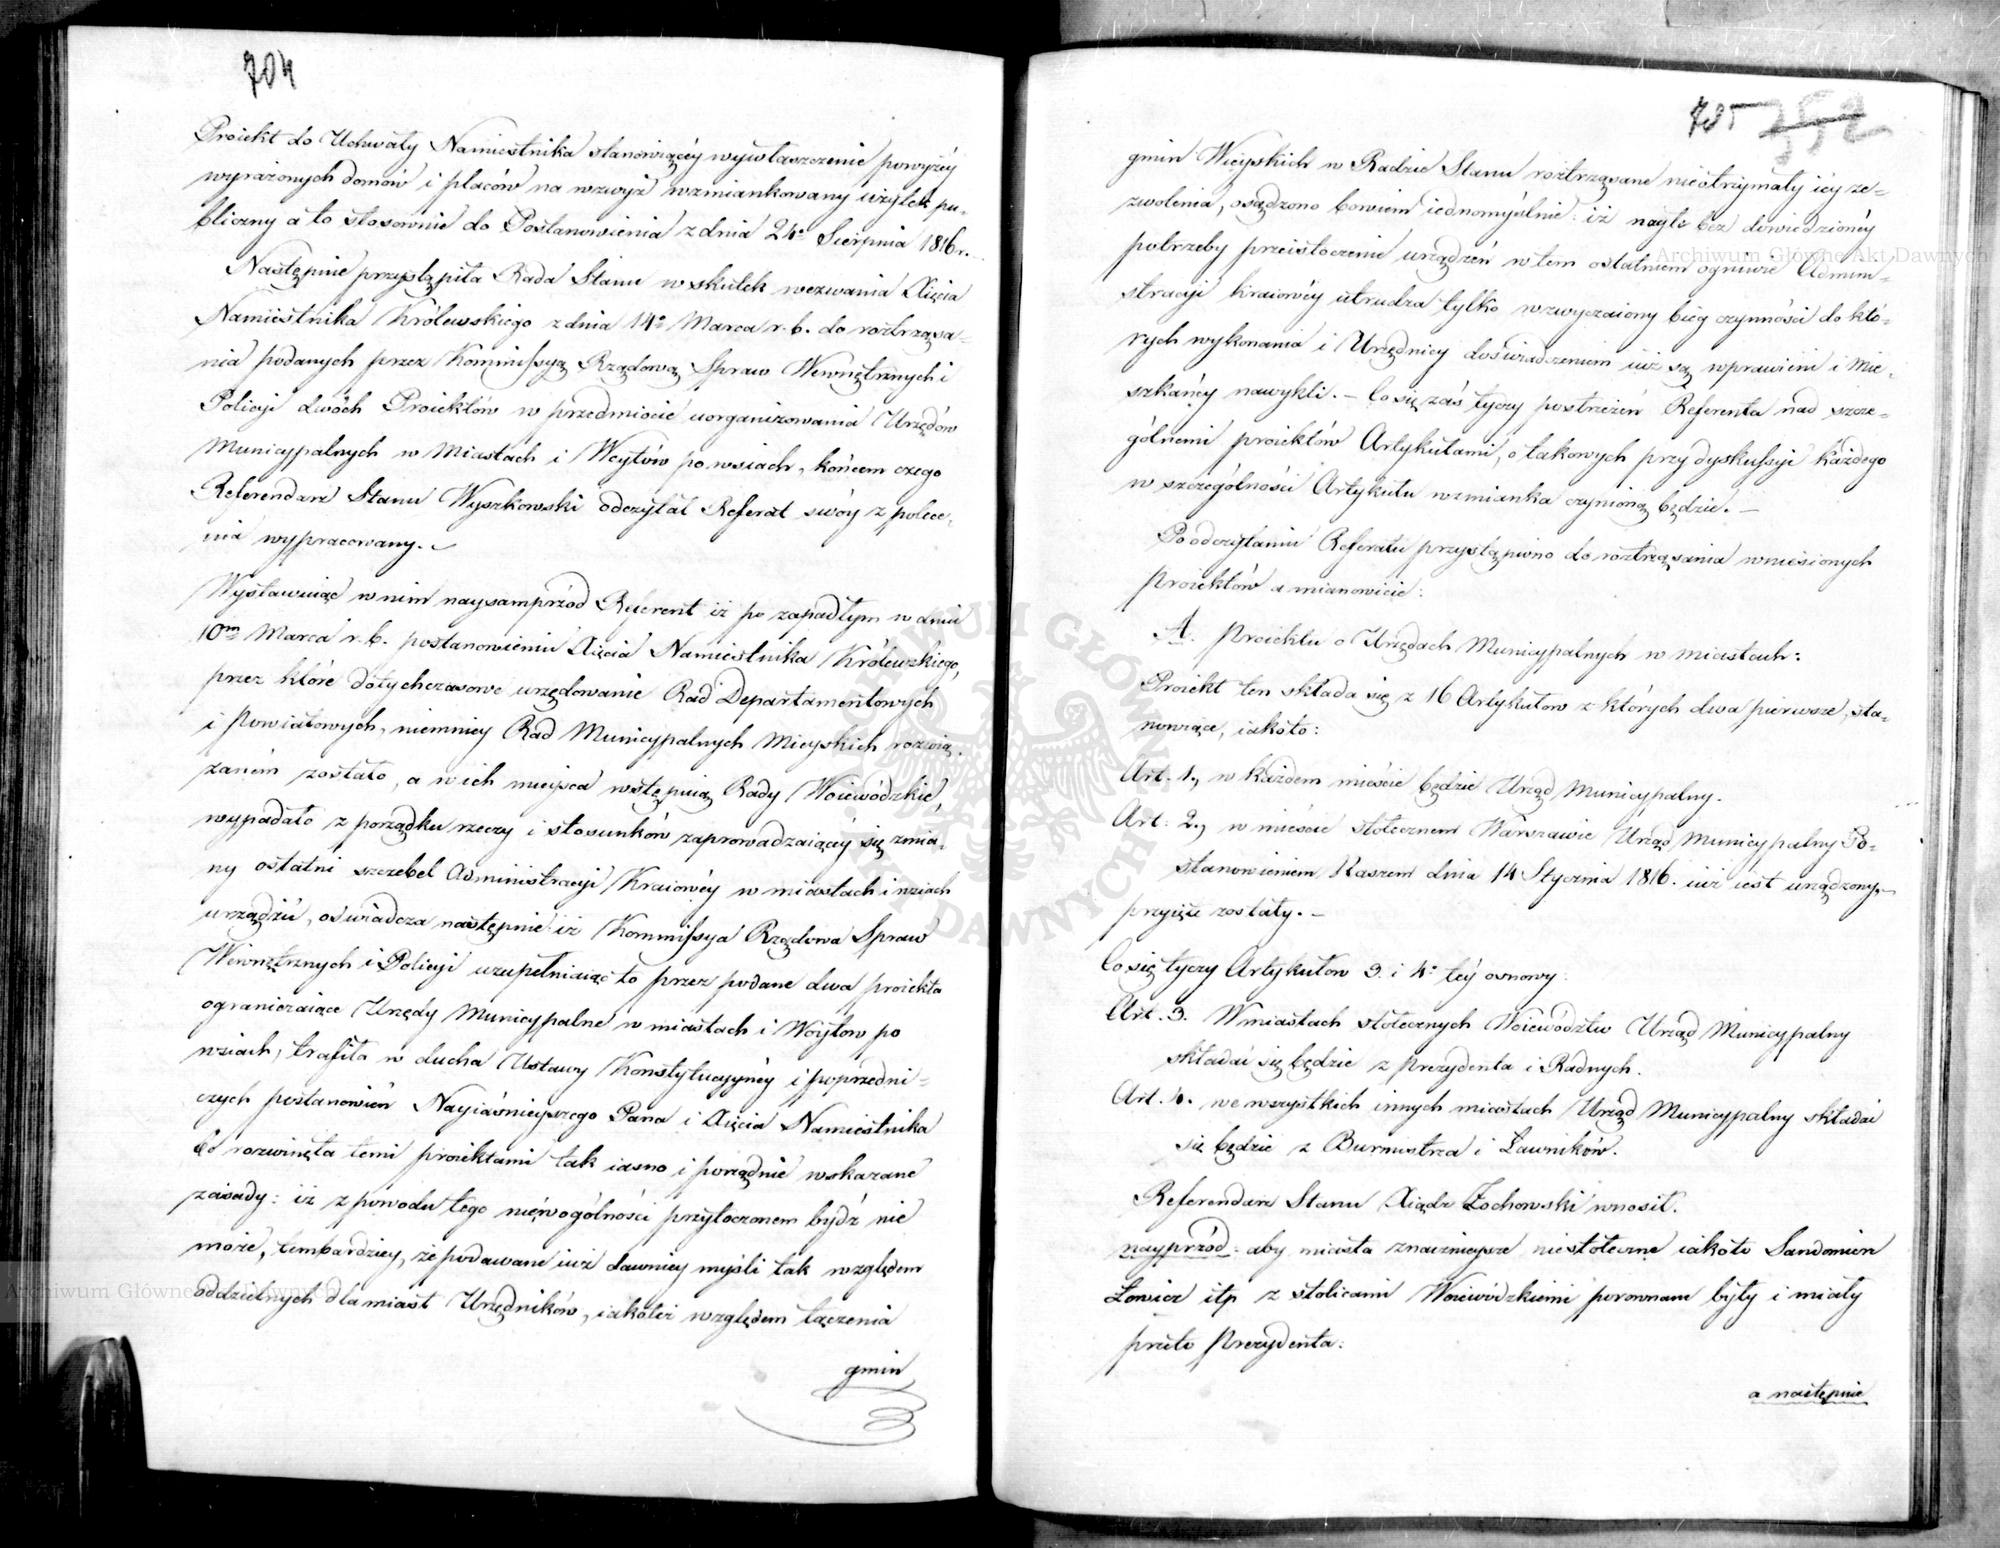 704
Proiekt do Uchwały Namiestnika stanowiącéy wywłaszczenie powyżéy
wyrażonych domów i placów na wzwyż wzmiankowany użytek pu-
bliczny a to stosownie do Postanowienia z dnia 24º Sierpnia 1816 r.
Następnie przystąpiła Rada Stanu w skutek wezwania Xięcia
Namiestnika Królewskiego z dnia 14º Marca r. b. do roztrząsa-
nia podanych przez Kommissyą Rządową Spraw Wewnętrznych i
Policyi dwóch Proiektów w przedmiocie uorganizowania Urzędów
Municypalnych w Miastach i Woytów po wsiach, końcem czego
Referendarz Stanu Wyszkowski odczytał Referat swóy z polece-
nia wypracowany.
Wystawuiąc w nim naysamprzód Referent iż po zapadłym w dniu
10m Marca r. b. postanowieniu Xięcia Namiestnika Królewskiego,
przez które dotychczasowe urzędowanie Rad Departamentowych
i Powiatowych, niemniey Rad Municypalnych Mieyskich rozwią-
zanem zostało, a w ich mieysca wstępuią Rady Woiewódzkie,
wypadało z porządku rzeczy i stosunków zaprowadzaiącéy się zmia-
ny ostatni szczebel Administracyi Kraiowéy w miastach i wsiach
urządzić, oświadcza następnie iż Kommissya Rządowa Spraw
Wewnętrznych i Policyi uzupełniaiąc to przez podane dwa proiekta
ograniczaiące Urzędy Municypalne w miastach i Woytów po
wsiach, trafiła w ducha Ustawy Konstytucyynéy i poprzedni-
czych postanowień Nayiaśnieyszego Pana i Xięcia Namiestnika
bo rozwinęła temi proiektami tak iasno i porządnie wskazane
zasady: iż z powodu tego nic w ogólności przytoczonem bydź nie
może, tembardziey, że podawane iuż dawniey myśli tak względem
oddzielnych dla miast Urzędników, iakoteż względem łączenia
gmin
705 352
gmin Wieyskich w Radzie Stanu roztrząsane nieotrzymały iey ze-
zwolenia, osądzono bowiem iednomyślnie: iż nagłe bez dowiedzionéy
potrzeby przeistoczenie urządzeń w tem ostatniem ogniwie Admini-
stracyi kraiowéy utrudza tylko wzwyczaiony bieg czynności do któ-
rych wykonania i Urzędnicy doświadczeniem iuż są wprawieni i Mie-
szkańcy nawykli. — Co się zaś tyczy postrzeżeń Referenta nad szcze-
gólnemi proiektów Artykułami, o takowych przy dyskussyi każdego
w szczególności Artykułu wzmianka czynioną będzie. —
Po odczytaniu Referatu przystąpiono do roztrząsania wniesionych
Proiektów a mianowicie:
A. Proiektu o Urzędach Municypalnych w miastach:
Proiekt ten składa się z 16 Artykułów z których dwa pierwsze, sta-
nowiące, iakoto:
Art. 1., w każdem mieście będzie Urząd Municypalny.
Art: 2., w mieście stołecznem Warszawie Urząd Municypalny Po-
stanowieniem Naszem dnia 14 Stycznia 1816. iuż iest urządzony,
przyięte zostały. —
Co się tyczy Artykułów 3. i 4º téy osnowy:
Art. 3. W miastach stołecznych Woiewództw Urząd Municypalny
składać się będzie z Prezydenta i Radnych.
Art. 4. we wszystkich innych miastach Urząd Municypalny składać
się będzie z Burmistrza i Ławników.
Referendarz Stanu Xiądz Żochowski wnosił.
nayprzód: aby miasta znacznieysze niestołeczne iakoto Sandomierz
Łowicz itp z stolicami Woiewódzkiemi porównane były i miały
przeto Prezydenta:
a następnie
Archiwum Główne Akt Dawnych
Archiwum Główne Akt Dawnych
ARCHIWUM GŁÓWNE AKT DAWNYCH